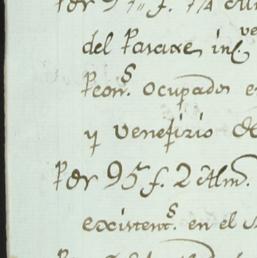 Por 97 f. 7/4
del Parage incl.ve
Peon.s ocupados e
y Veneficio de
Por 95 f. 2 Alm.
existent.s en el